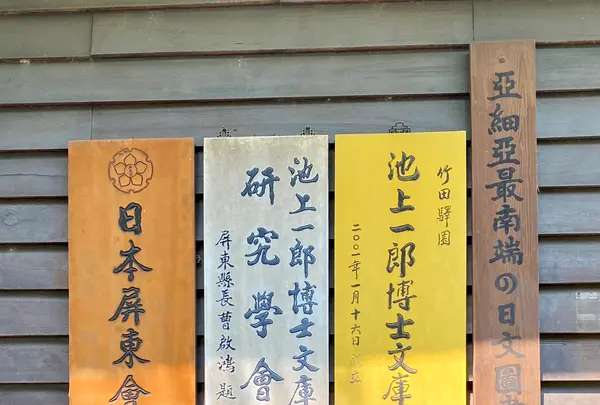 亞細亞最南端の日文圖
竹田驛園
池上一郎博士文庫
二〇〇一年一月十六日
池上一郎博士文庫
研究學會
屏東縣長曹啟鴻題
日本屏東會